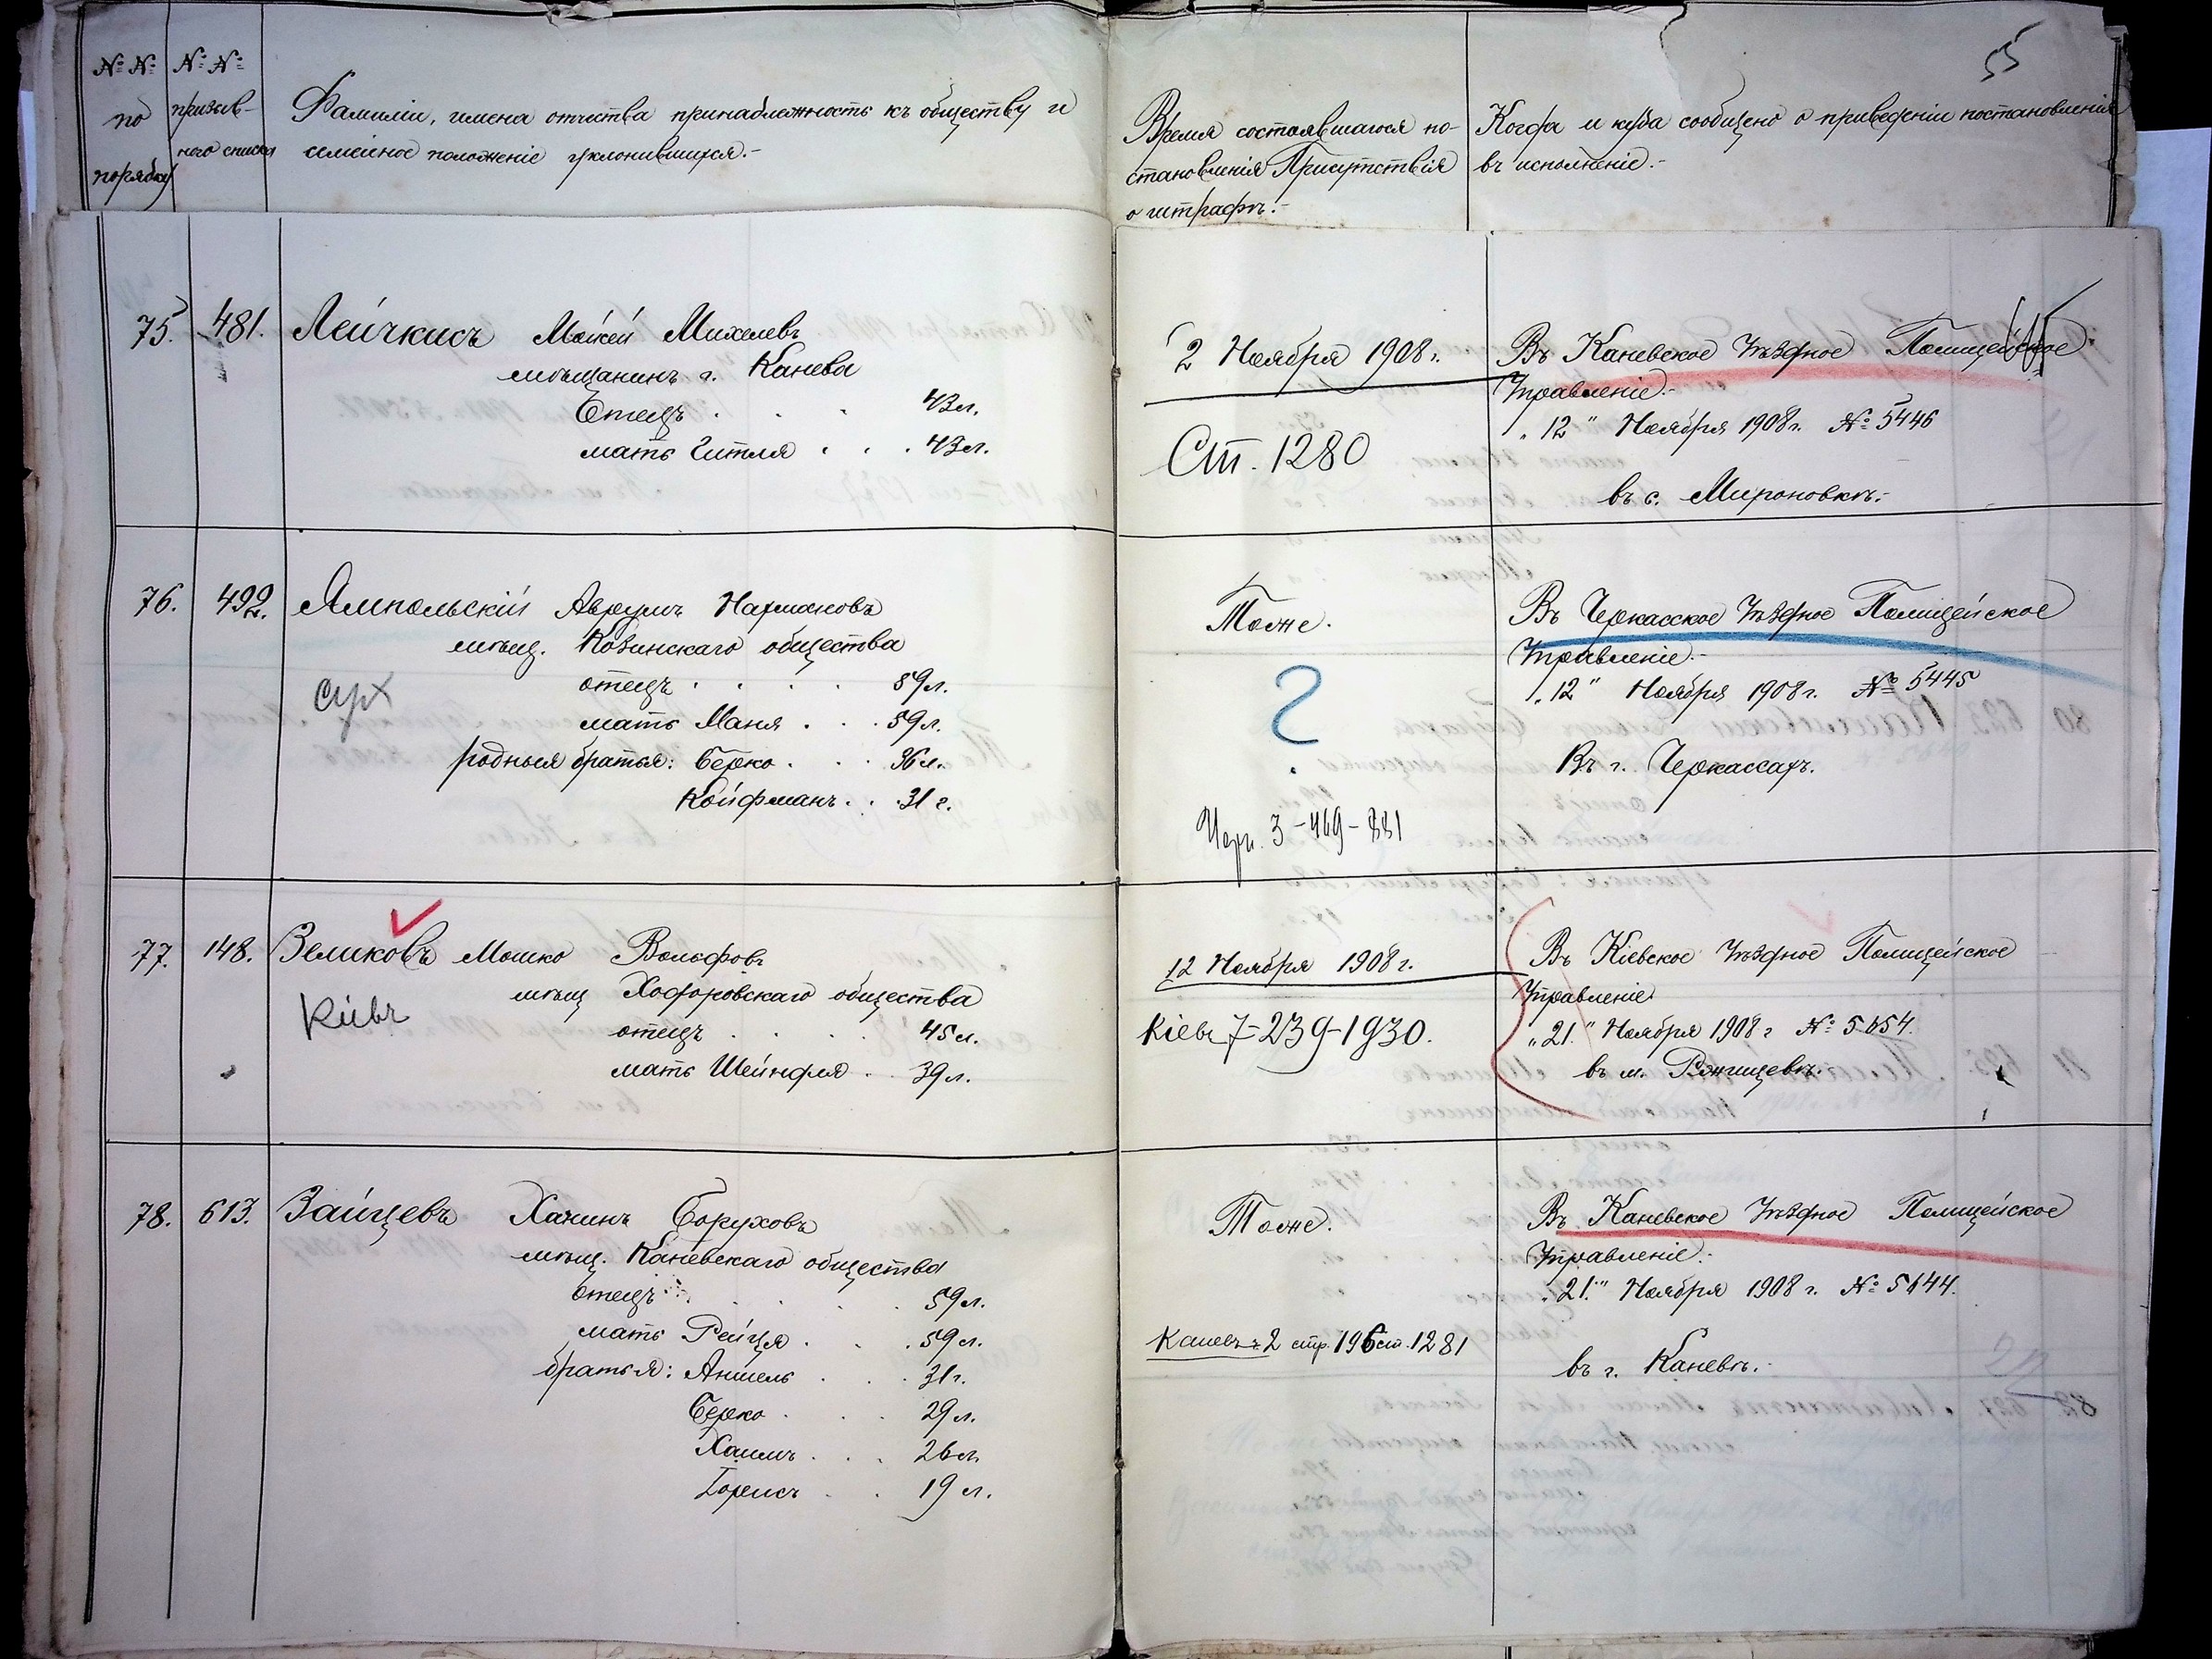 55
№ № по порядку
№ № призыв-
наго списка
Фамиліи, имена отчества принадлежность къ обществу и
семейное положеніе уклонившихся.-
Время состоявшагося по-
становленія Присутствія
о штрафѣ.-
Когда и куда сообщено о приведеніи постановленія
въ исполненіе.-
75. 481. Лейчкисъ Мойсей Михелевъ
мѣщанинъ г. Канева
Отецъ . . . 43 л.
мать Гитля . . . 43 л.
2 Ноября 1908 г.
Ст. 1280
Въ Каневское Уѣздное Полицейское
Управленіе.-
"12" Ноября 1908 г. № 5446
въ с. Мироновкѣ.-
76. 492. Ямпольскій Аврумъ Нахмановъ
мѣщ. Козинскаго общества
отецъ . . . . 59 л.
мать Маня . . . 59 л.
родные братья: Берко . . . 36 л.
Койфманъ . . . 31 г.
Тоже.
?
Черк. 3-469-881
Въ Черкасское Уѣздное Полицейское
Управленіе.-
"12" Ноября 1908 г. № 5445
Въ г. Черкассахъ.
77. 148. Зеликовъ Мошко Вольфовъ
мѣщ Ходоровскаго общества
отецъ . . . . 45 л.
мать Шейндля . 39 л.
Кіевъ
12 Ноября 1908 г.
Кіевъ 7-239-1930.
Въ Кіевское Уѣздное Полицейское
Управленіе
"21." Ноября 1908 г № 5654.
въ м. Ржищевѣ.
78. 613. Зайцевъ Ханинъ Боруховъ
мѣщ. Каневскаго общества
отецъ . . . . 59 л.
мать Рейзя . . . 59 л.
братья: Аншель . . . 31 г.
Берко . . . 29 л.
Хаимъ . . . 26 л.
Борисъ . . 19 л.
Тоже.
Каневъ 2 стр. 196 ст. 1281
Въ Каневское Уѣздное Полицейское
Управленіе.-
"21." Ноября 1908 г. № 5644.
въ г. Каневѣ.-